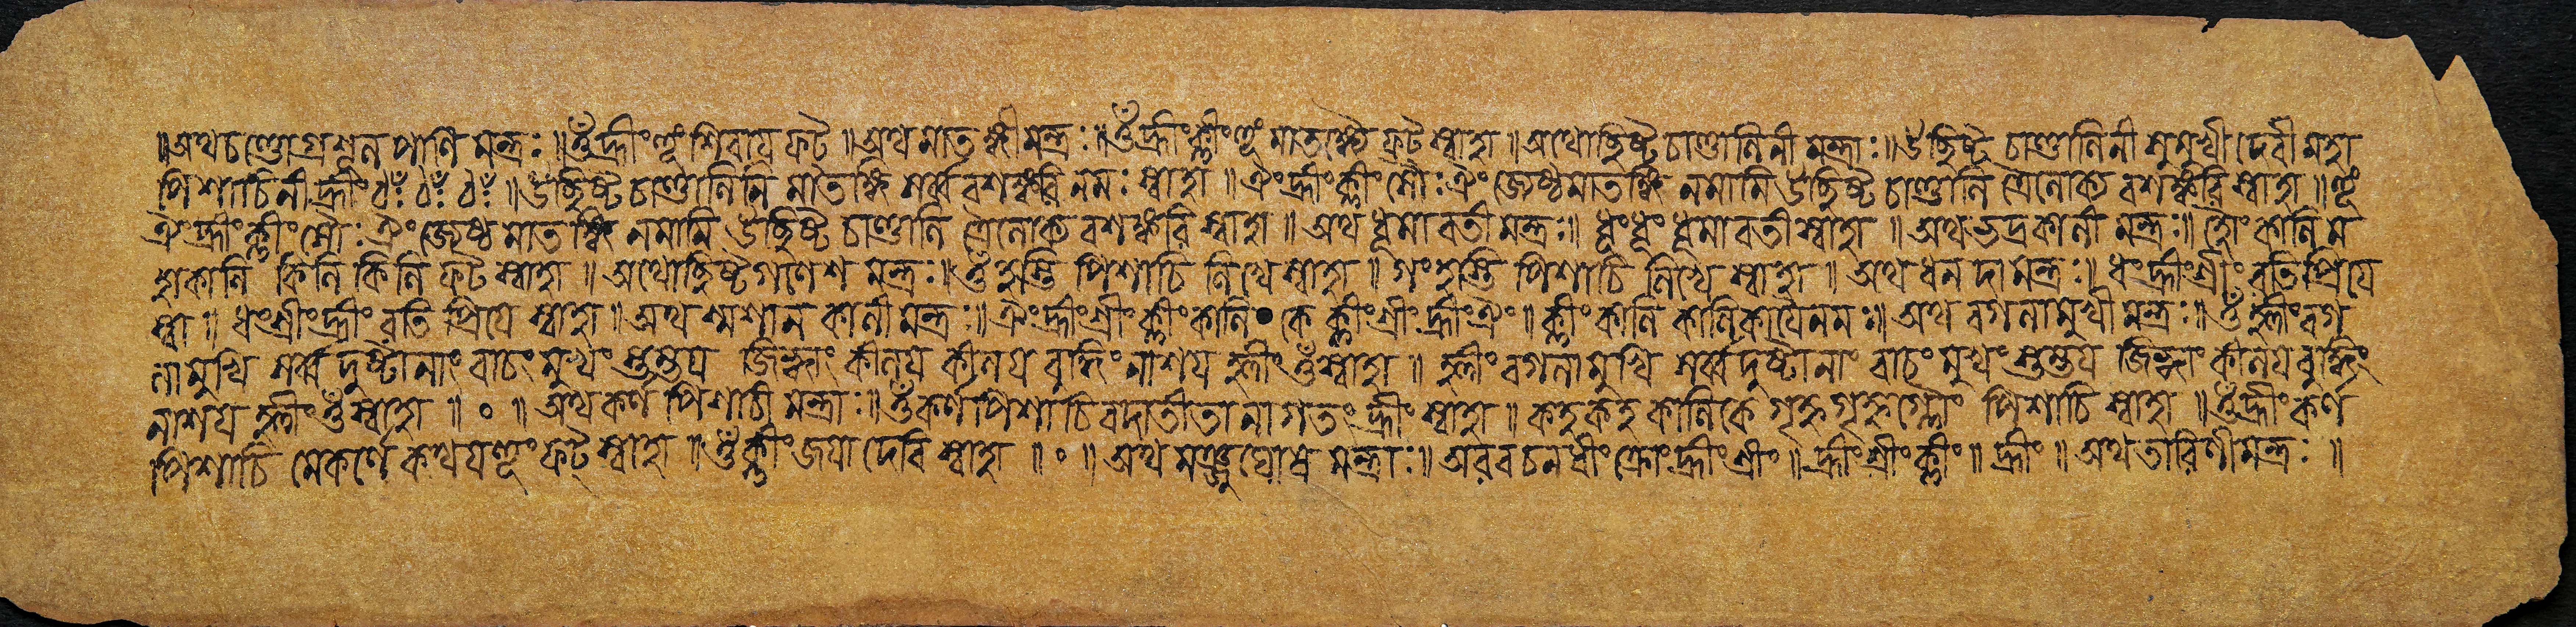 ॥অথ চণ্ডোগ্রশূলপাণি মন্ত্রঃ॥ ওঁ হ্রীং হূং শিবায ফট্॥ অথ মাতঙ্গী মন্ত্রঃ॥ ওঁ হ্রীং ক্লীং হূং মাতঙ্গ্যৈ ফট্ স্বাহা॥ অথোচ্ছিষ্ট চাণ্ডালিনী মন্ত্রাঃ॥ উচ্ছিষ্ট চাণ্ডালিনী সুমুখী দেবী মহা
পিশাচিনী হ্রীং ঠঃ ঠঃ ঠঃ॥ উচ্ছিষ্ট চাণ্ডালিনি মাতঙ্গি সর্ব্ববশঙ্করি নমঃ স্বাহা॥ ঐং হ্রীং ক্লীং সৌঃ ঐং জ্যেষ্ঠমাতঙ্গি নমামি উচ্ছিষ্ট চাণ্ডালি ত্রৈলোক্য বশঙ্করি স্বাহা॥ হূং
ঐং হ্রীং ক্লীং সৌঃ ঐং জ্যেষ্ঠ মাতঙ্গি নমামি উচ্ছিষ্ট চাণ্ডালি ত্রৈলোক্য বশঙ্করি স্বাহা॥ অথ ধূমাবতী মন্ত্রঃ॥ ধূং ধূং ধূমাবতী স্বাহা॥ অথ ভদ্রকালী মন্ত্রঃ॥ হৌং কালি ম
হাকালি কিলি কিলি ফট্ স্বাহা॥ অথোচ্ছিষ্টগণেশ মন্ত্রঃ॥ ওঁ হস্তি পিশাচি লিখে স্বাহা॥ গং হস্তি পিশাচি লিখে স্বাহা॥ অথ ধনদা মন্ত্রঃ॥ ধং হ্রীং শ্রীং রতিপ্রিযে
স্বা॥ ধং শ্রীং হ্রীং রতি প্রিযে স্বাহা॥ অথ শ্মশান কালী মন্ত্রঃ॥ ঐং হ্রীং শ্রীং ক্লীং কালি॰কে ক্লীং শ্রীং হ্রীং ঐং॥ ক্লীং কালি কালিকাযৈ নমঃ॥ অথ বগলামুখী মন্ত্রঃ॥ ওঁ হ্লীং বগ
লামুখি সর্ব্বদুষ্টানাং বাচং মুখং স্তম্ভয জিহ্বাং কীলয কীলয বুদ্ধিং নাশয হ্লীং ওঁ স্বাহা॥ হ্লীং বগলামুখি সর্ব্বদুষ্টানাং বাচং মুখং স্তম্ভয জিহ্বাং কীলয বুদ্ধিং
নাশয হ্লীং ওঁ স্বাহা॥ ০॥ অথ কর্ণ পিশাচী মন্ত্রাঃ॥ ওঁ কর্ণ পিশাচি বদাতীতানাগতং হ্রীং স্বাহা॥ কহ কহ কালিকে গৃহ্ণ গৃহ্ণ পিশাচি স্বাহা॥ ওঁ হ্রীং কর্ণ
পিশাচি মে কর্ণে কথয হূং ফট্ স্বাহা॥ ওঁ ক্লীং জযা দেবি স্বাহা॥ ০॥ অথ মঞ্জুঘোষ মন্ত্রাঃ॥ অরবচলধীং ক্রোং হ্রীং শ্রীং॥ হ্রীং শ্রীং ক্লীং॥ হ্রীং॥ অথ তারিণী মন্ত্রঃ॥